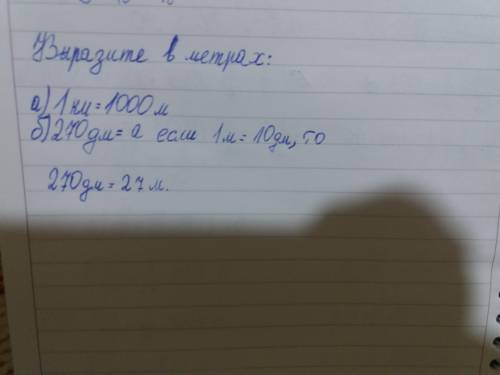 Выразите в метрах:
а) 1 км = 1000 м
б) 270 дм = а если 1 м = 10 дм, то
270 дм = 27 м.